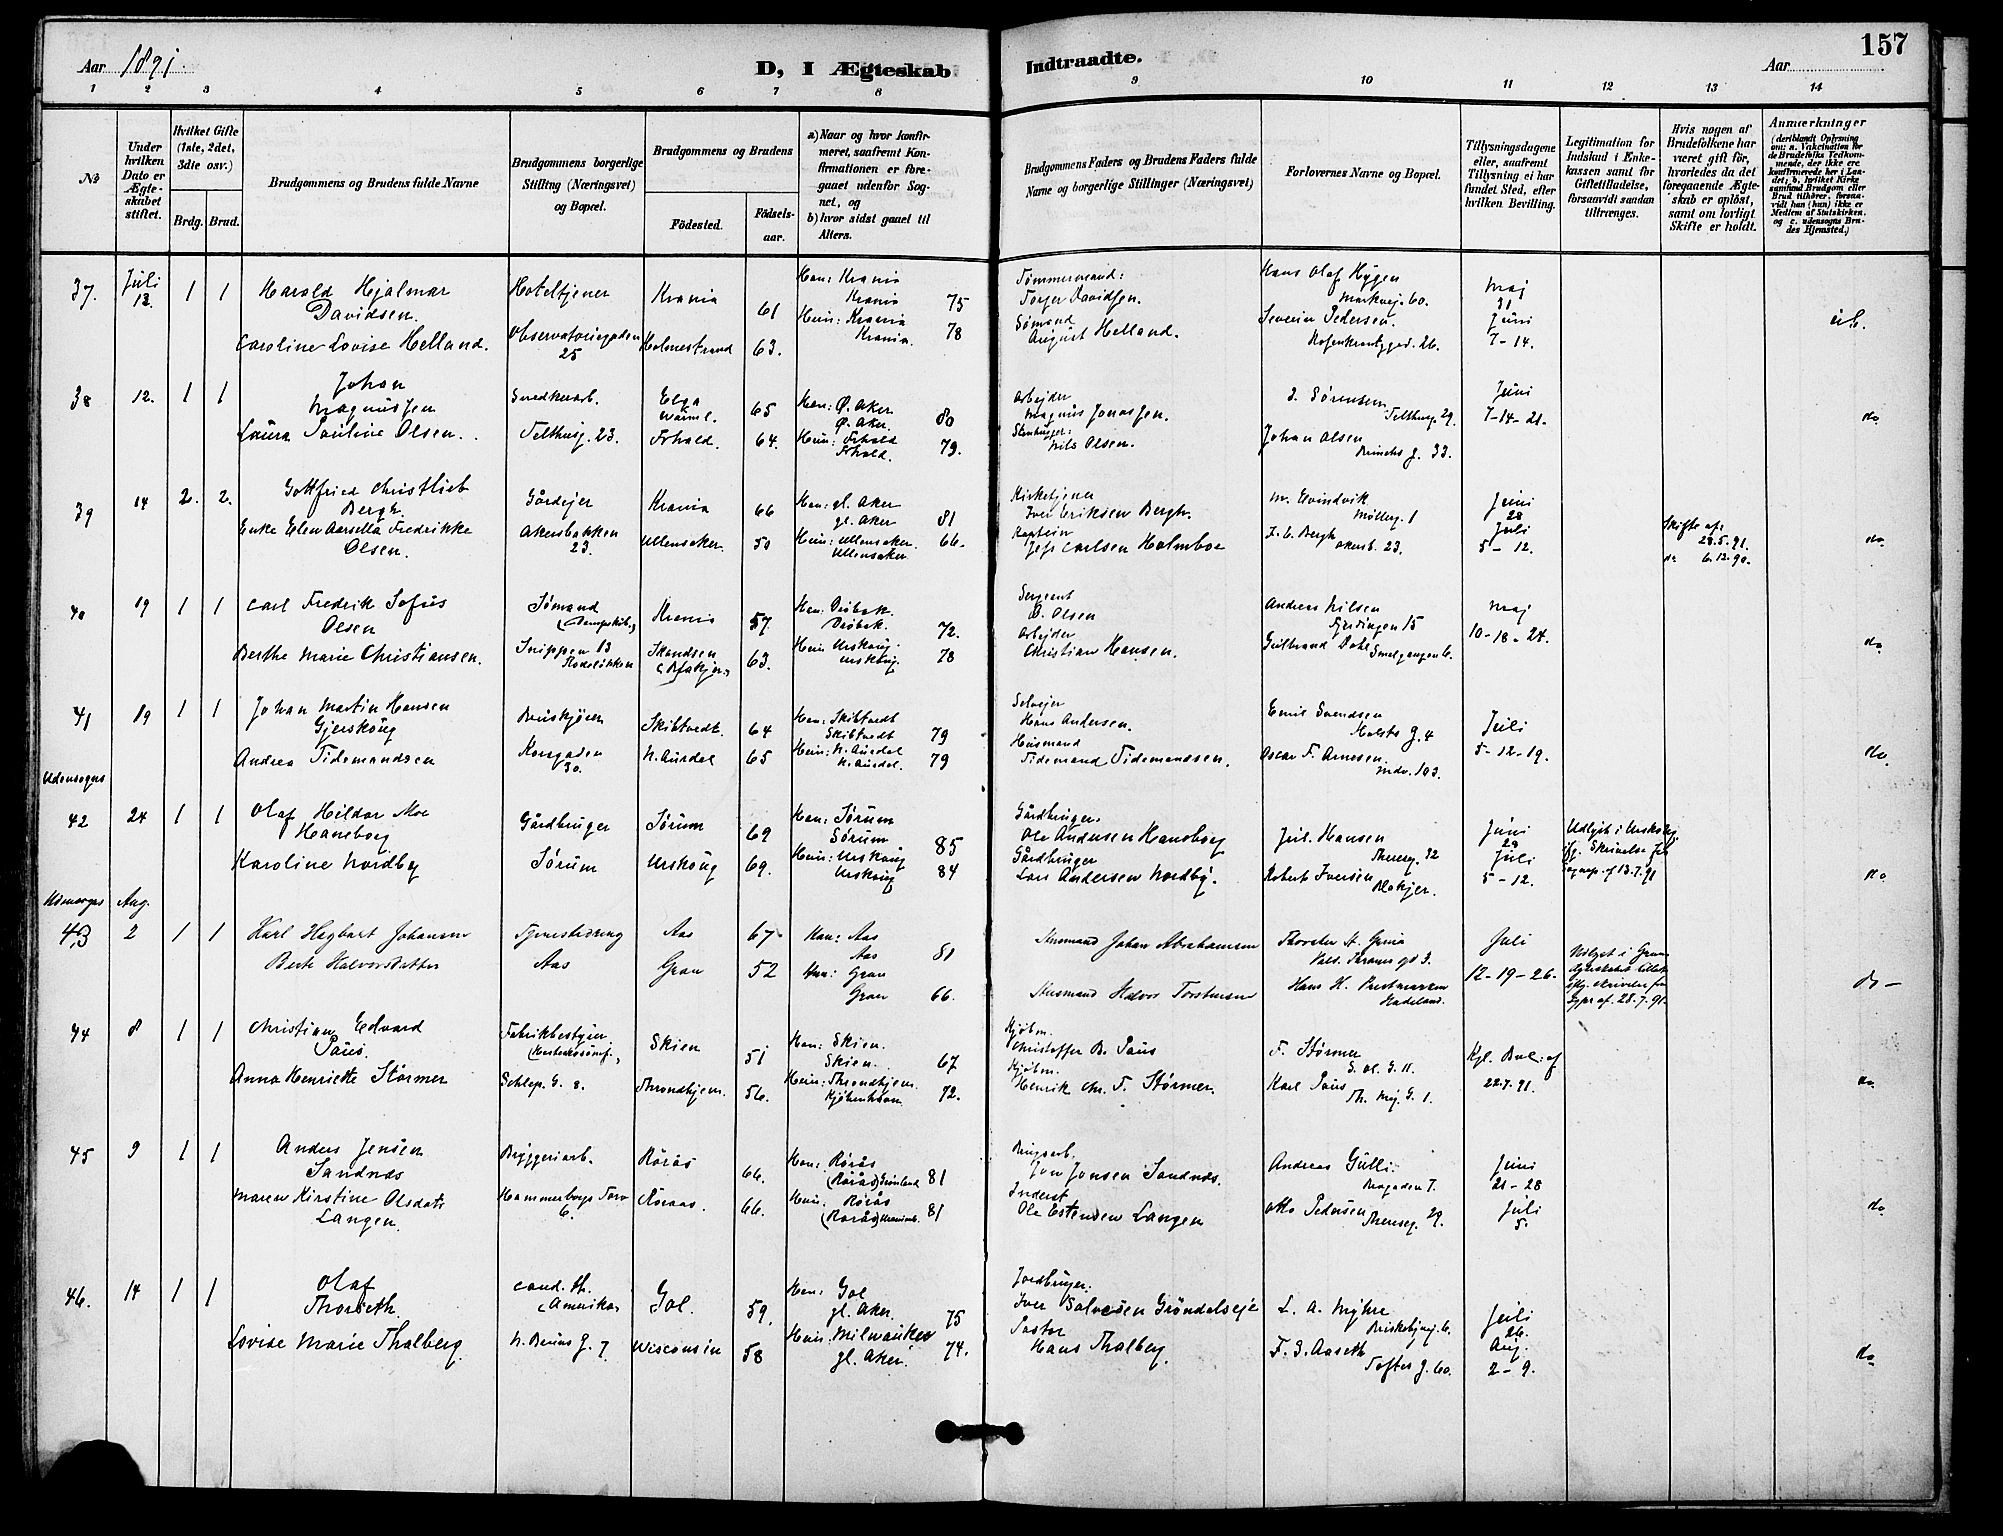 157
Aar 1891.
D, I Ægteskab Indtraadte.
Aar
1 2 3 4 5 6 7 8 9 10 11 12 13 14
No
Under hvilken Dato er Ægteskabet stiftet.
Hvilket Gifte (1ste, 2det, 3die osv.)
Brdg. Brud.
Brudgommens og Brudens fulde Navne
Brudgommens borgerlige Stilling (Næringsvei) og Bopæl.
Brudgommens og Brudens
Födested. Födselsaar.
a) Naar og hvor konfirmeret, saafremt Konfirmationen er foregaaet udenfor Sognet, og
b) hvor sidst gaaet til Alters.
Brudgommens Faders og Brudens Faders fulde Navne og borgerlige Stillinger (Næringsvei)
Forlovernes Navne og Bopæl.
Tillysningsdagene eller, saafremt Tillysning ei har fundet Sted, efter hvilken Bevilling.
Legitimation for Indskud i Enkekassen samt for Giftetilladelse, forsaavidt saadan tiltrænges.
Hvis nogen af Brudefolkene har været gift før, hvorledes da det foregaaende Ægteskab er oplöst, samt om lovligt Skifte er holdt.
Anmærkninger
37. Juli 12. 1 1 Harald Hjalmar Davidsen. Hoteltjener Krania 61 Han: Krania Krania 75 Tømmermand: Torger Davidsen. Hans Olaf Hygen Markvej. 60. Maj 31
Caroline Lovise Helland. Observatoriegaden 25 Holmestrand 63. Hun: Krania Krania. 78 Sømand August Helland. Severin Pedersen. Rosenkrantzgd. 26. Juni 7-14.
38 12. 1 1 Johan Magnussen Snedkerarb. 65 Han: Ø. Aker Ø. Aker. 80 Arbejder Magnus Jonassen. J. Sørensen Telthusg. 29. Juni 7-14-21. do
Laura Pauline Olsen. Telthusg. 23. Frhald. 64. Hun: Frhald Frhald. 79. Nils Olsen. Johan Olsen 33.
39 14 2. 2. Gottfried Christlieb Bergh. Gårdejer Krania 66 Han: gl. Aker gl. Aker 81 Kirketjener Iver Eriksen Bergh. M. Evindvik Møllerg. 1 Juni 28 Skifte af: 28.5.91.
Enke Elen Fredrikke Olsen. Akersbakken 23. Ullensaker. 50 Hun: Ullensaker. Ullensaker 66. Kaptein Jess Carlsen Holmboe Bergh Akersb. 23. Juli 5-12. do 6.12.90. do.
40 19 1 1 Carl Fredrik Sofus Olsen Sømand (Dampskib) Krania 57. Han: Drøbak. Drøbak. 72. Sergeant O. Olsen Andreas Nilsen Fjerdingen 15 Maj 10-18-24.
Berthe Marie Christiansen. Snippen 13 Rodeløkken 63. Hun Urskoug. Urskoug. 78 Arbejder Christian Hansen. Gulbrand Dahl Smalgangen 6. do
41 19 1 1 Johan Martin Hansen Gjerskoug Skibtvedt. 64 Han: Skibtvedt Skibtvedt 79 Selvejer Hans Andersen. Emil Svendsen Holsts g. 4 Juli
Andrea Tidemandsen Korsgaden 30. N. Aurdal 65 Hun: N. Aurdal N. Aurdal. 79 Husmand Tidemand Tidemandsen. Oscar F. Arnesen. 103. 5-12-19. do.
Udensogns
42 24 1 1 Olaf Hildor Moe Hansborg Gårdbruger Sørum 69 Han: Sørum Sørum 85 Gårdbruger. Ole Andersen Hansborg Jul. Hansen 32 Juni 28 Udlyst i Urskoug
Karoline Nordby Sørum Urskoug 69. Hun: Urskoug Urskoug 84 Gårdbruger Lars Andersen Nordby. Robert Iversen Juli 5-12. Skrivelse af 13.7.91 do
Udensogns Aug.
43 2 1 1 Karl Hagbart Johansen Aas 67 Han: Aas Aas 81 Husmand Johan Abrahamsen Juli Udlyst i Gran
Berte Halvorsdatter Aas Gran 52 Hun: Gran Gran 66. Husmand Halvor Torstensen Hans H. Hadeland. 12-19-26. skrivelse af 28.7.91 do-
44 8 1 1 Christian Edvard Paus. Fabrikbestyrer Skien 51 Han: Skien. Skien. 67 Kjøbm. Christoffer B. Paus F. Størmer Kgl. Bev: af
Anna Henriette Størmer Schlep. G. 8. Throndhjem. 56. Hun: Throndhjem. Kjøbenhavn. 72. Kjøbm. Henrik Chr. F. Størmer. Karl Paus Th. Mej. G. 1. 22.7.91. do.
45 9 1 1 Anders Jensen Sandnæs Bryggeriarb. Rörås 66. Han: Rörås (Rörås) 81 Jon Jonsen Sandnæs. Andreas Gulli. Brogaden 7. Juni 21-28
Maren Kirstine Olsdatr Langen. Hammerborgs Torv 6. Röraas. 66. Hun: Rörås (Rorås) 81 Inderst Ole Estensen Langen Otto Pedersen 29. Juli 5. do.
46. 14 1 1 Olaf Thorseth cand. th. (Amerika) Gol. 59. Han: Gol gl. Aker. 75 Jordbruger. Iver Salvesen Gröndalseje L. A. Myhre Briskebyvej. 6. Juli 26.
Lovise Marie Thalberg. 7 Wisconsin 58 Hun: Milwaukee gl. Aker. 74. Pastor Hans Thalberg. F. G. Aaseth Toftes g. 60. Aug. 2-9. do